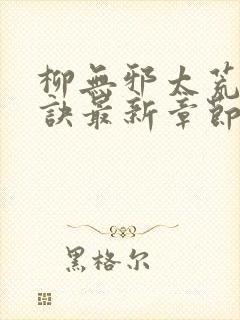 柳無邪太荒
訣最新章節
黑格尔